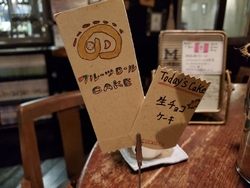 フルーツロール
CAKE
Today's Cake
生チョコ
ケーキ